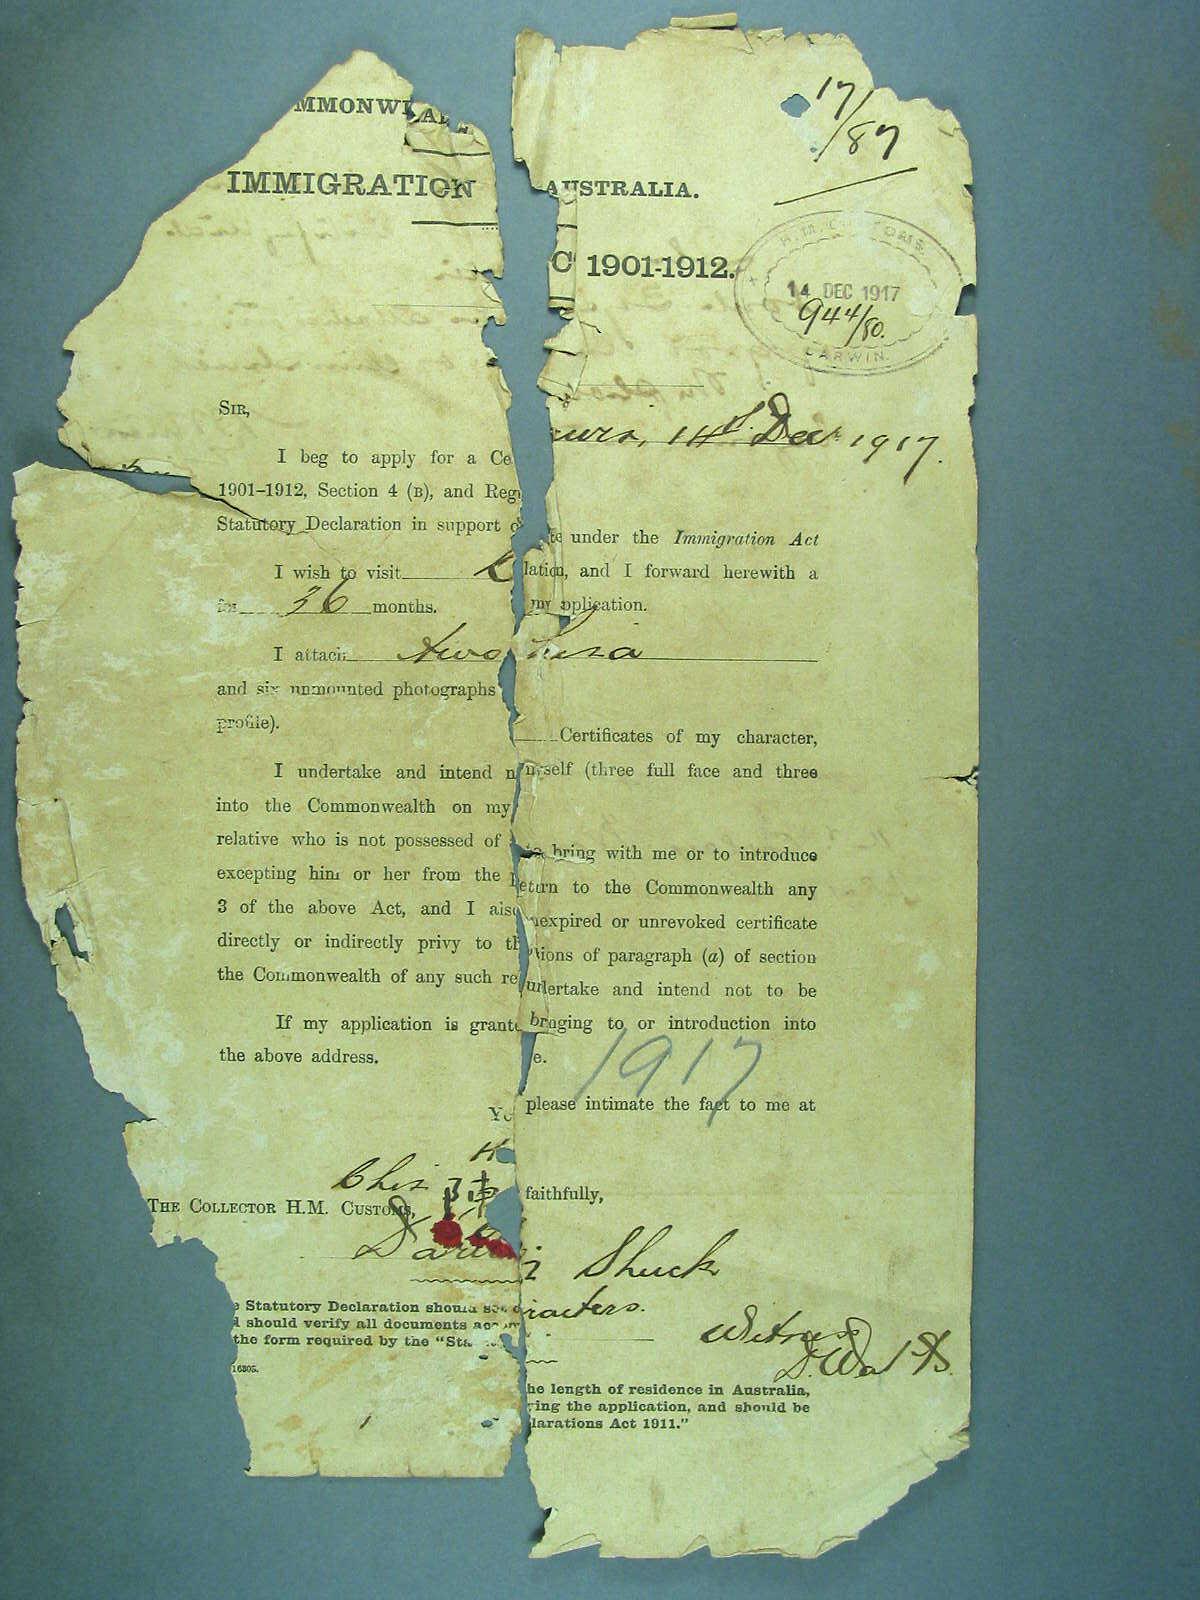 17/87
MMONWEAL AUSTRALIA.
IMMIGRATION AC 1901-1912.
H.M. CUSTOMS
14 DEC 1917
944/80.
DARWIN
14th Dec 1917.
SIR,
I beg to apply for a Ce te under the Immigration Act
1901–1912, Section 4 (B), and Regulation, and I forward herewith a
Statutory Declaration in support o my application.
I wish to visit China
for 36 months.
I attach two Certificates of my character,
and six unmounted photographs myself (three full face and three
profile).
I undertake and intend n to bring with me or to introduce
into the Commonwealth on my return to the Commonwealth any
relative who is not possessed of unexpired or unrevoked certificate
excepting him or her from the p isions of paragraph (a) of section
3 of the above Act, and I also undertake and intend not to be
directly or indirectly privy to th bringing to or introduction into
the Commonwealth of any such re e.
If my application is grante please intimate the fact to me at
the above address.
1917
Yo faithfully,
Shuck
THE COLLECTOR H.M. CUSTOMS,
Dar
racters.
Witness
e Statutory Declaration should he length of residence in Australia,
d should verify all documents ying the application, and should be
the form required by the "Sta larations Act 1911."
16305.